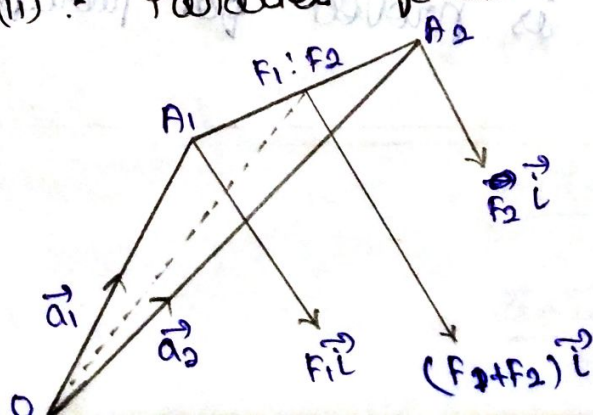 (ii) :-
A2
F1 : F2
A1
F2 i⃗
a⃗1
a⃗2
F1 i⃗
(F1+F2) i⃗
O